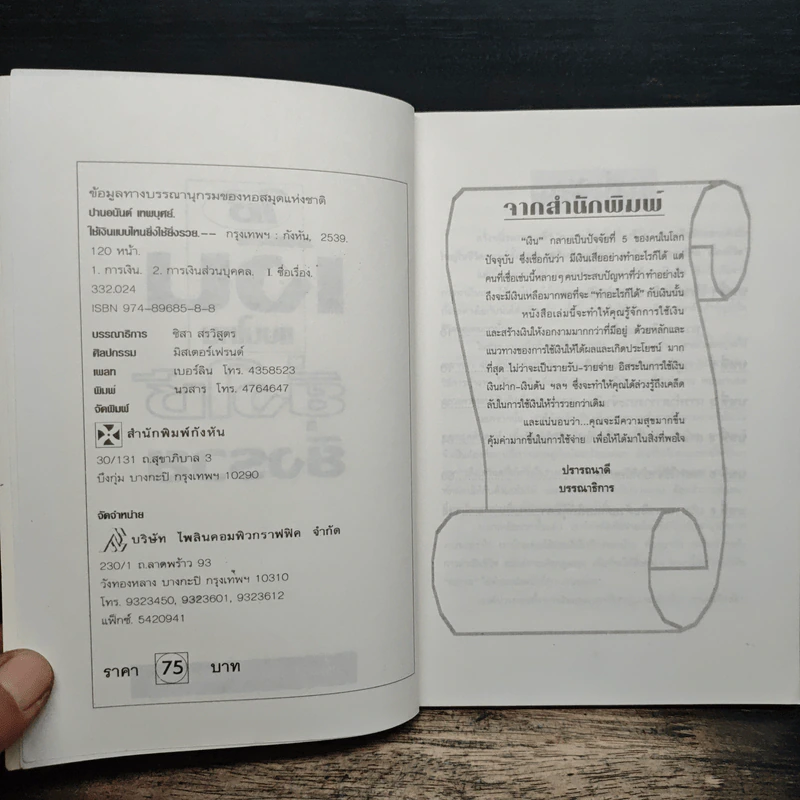 ข้อมูลทางบรรณานุกรมของหอสมุดแห่งชาติ
ปานอนันต์ เทพบุศย์.
ใช้เงินแบบไหนยิ่งใช้ยิ่งรวย.-- กรุงเทพฯ : กังหัน, 2539.
120 หน้า.
1. การเงิน. 2. การเงินส่วนบุคคล. I ชื่อเรื่อง.
332.024
ISBN 974-89685-8-8
บรรณาธิการ ชิสา สรวิสูตร
ศิลปกรรม มิสเตอร์เฟรนด์
เพลท เบอร์ลิน โทร. 4358523
พิมพ์ นวสาร โทร. 4764647
จัดพิมพ์
สำนักพิมพ์กังหัน
30/131 ถ.สุขาภิบาล 3
บึงกุ่ม บางกะปิ กรุงเทพฯ 10290
จัดจำหน่าย
บริษัท ไพลินคอมพิวกราฟฟิค จำกัด
230/1 ถ.ลาดพร้าว 93
วังทองหลาง บางกะปิ กรุงเทพฯ 10310
โทร. 9323450, 9323601, 9323612
แฟ็กซ์. 5420941
ราคา 75 บาท
จากสำนักพิมพ์
"เงิน" กลายเป็นปัจจัยที่ 5 ของคนในโลก
ปัจจุบัน ซึ่งเชื่อกันว่า มีเงินเสียอย่างทำอะไรก็ได้ แต่
คนที่เชื่อเช่นนี้หลายๆ คนประสบปัญหาที่ว่าทำอย่างไร
ถึงจะมีเงินเหลือมากพอที่จะ "ทำอะไรก็ได้" กับเงินนั้น
หนังสือเล่มนี้จะทำให้คุณรู้จักการใช้เงิน
และสร้างเงินให้งอกงามมากกว่าที่มีอยู่ ด้วยหลักและ
แนวทางของการใช้เงินให้ได้ผลและเกิดประโยชน์ มาก
ที่สุด ไม่ว่าจะเป็นรายรับ-รายจ่าย อิสระในการใช้เงิน
เงินฝาก-เงินดัน ฯลฯ ซึ่งจะทำให้คุณได้ล่วงรู้ถึงเคล็ด
ลับในการใช้เงินให้ร่ำรวยกว่าเดิม
และแน่นอนว่า...คุณจะมีความสุขมากขึ้น
คุ้มค่ามากขึ้นในการใช้จ่าย เพื่อให้ได้มาในสิ่งที่พอใจ
ปรารถนาดี
บรรณาธิการ